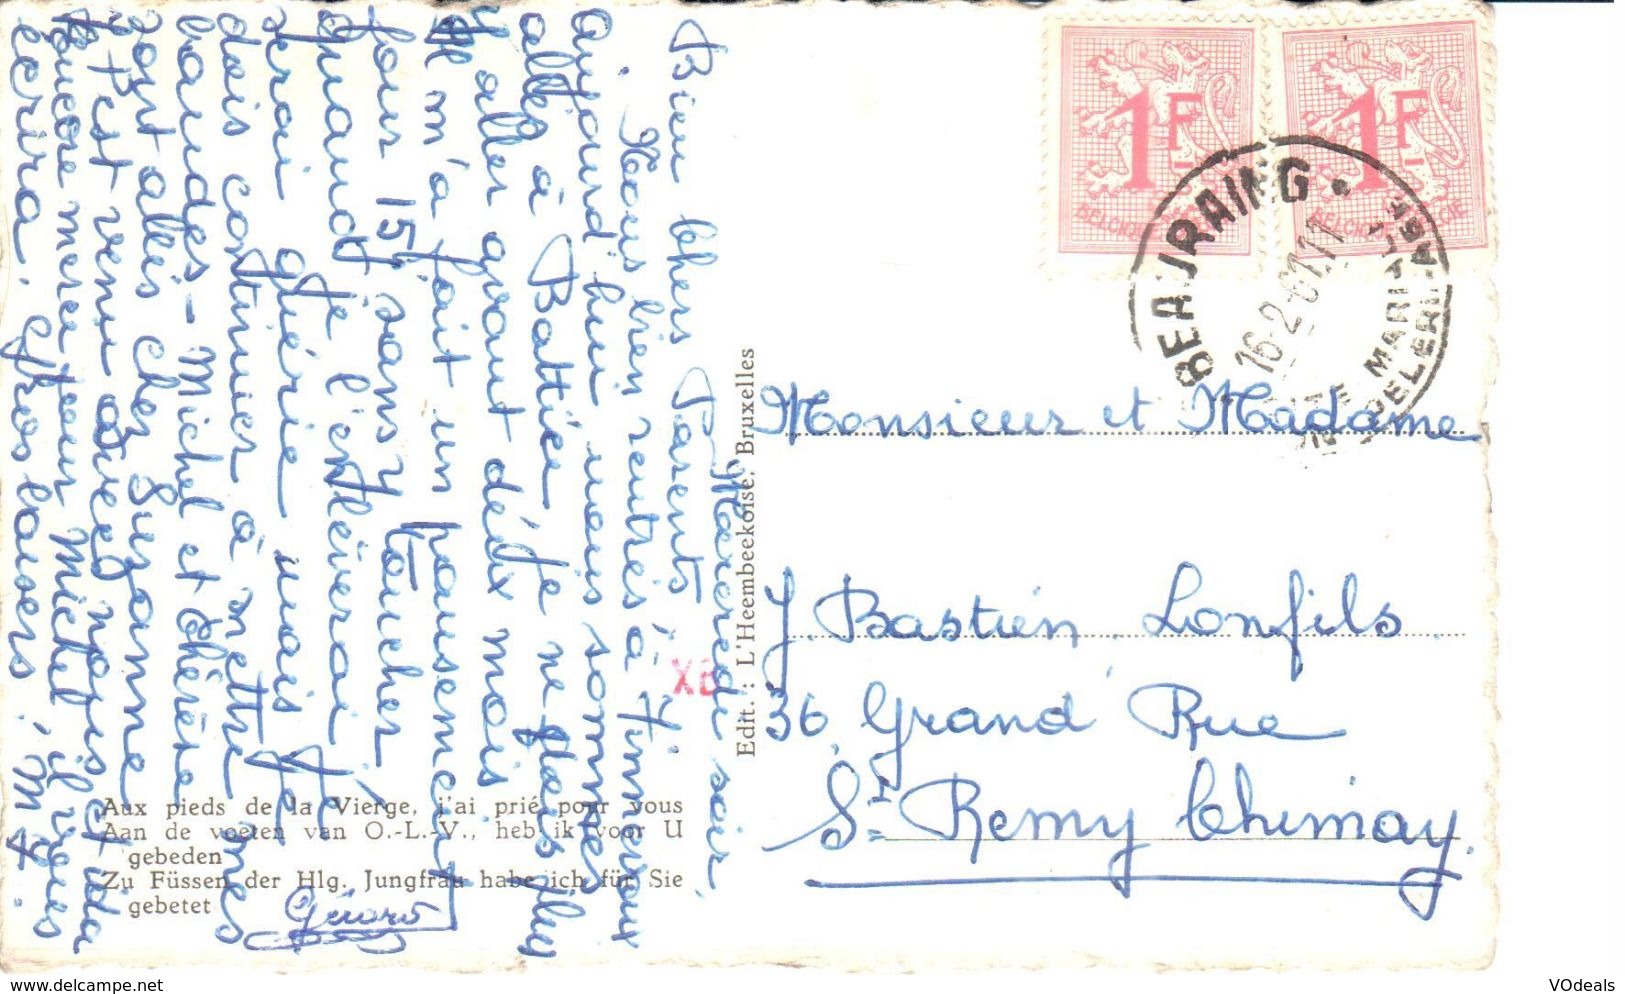 Mercredi soir.
Bien Chers Parents,
Nous bien rentrés à 7 heures
Aujourd'hui nous sommes
allés à Battice je ne dois plus
y aller avant deux mois.
Il m'a fait un pansement
pour 15 J sans y toucher
quand je l'enlèverai je
serai guérie mais je
dois continuer à mettre mes
bandes - Michel et Thérèse
sont allés chez Suzanne
et est venu avec nous et
encore merci pour Michel il vous
écrira. Gros baisers. M
Gérard
Aux pieds de la Vierge, j'ai prié pour vous
Aan de voeten van O.-L.-V., heb ik voor U
gebeden
Zu Füssen der Hlg. Jungfrau habe ich für Sie
gebetet
Edit. : L'Heembeekoise, Bruxelles
XB
1F
BELGIQUE
1F
BELGIQUE-BELGIE
BEAURAING
16-2-61 11
Monsieur et Madame
J. Bastien Lonfils
36 Grand Rue
St Remy Chimay.
www.delcampe.net
VOdeals